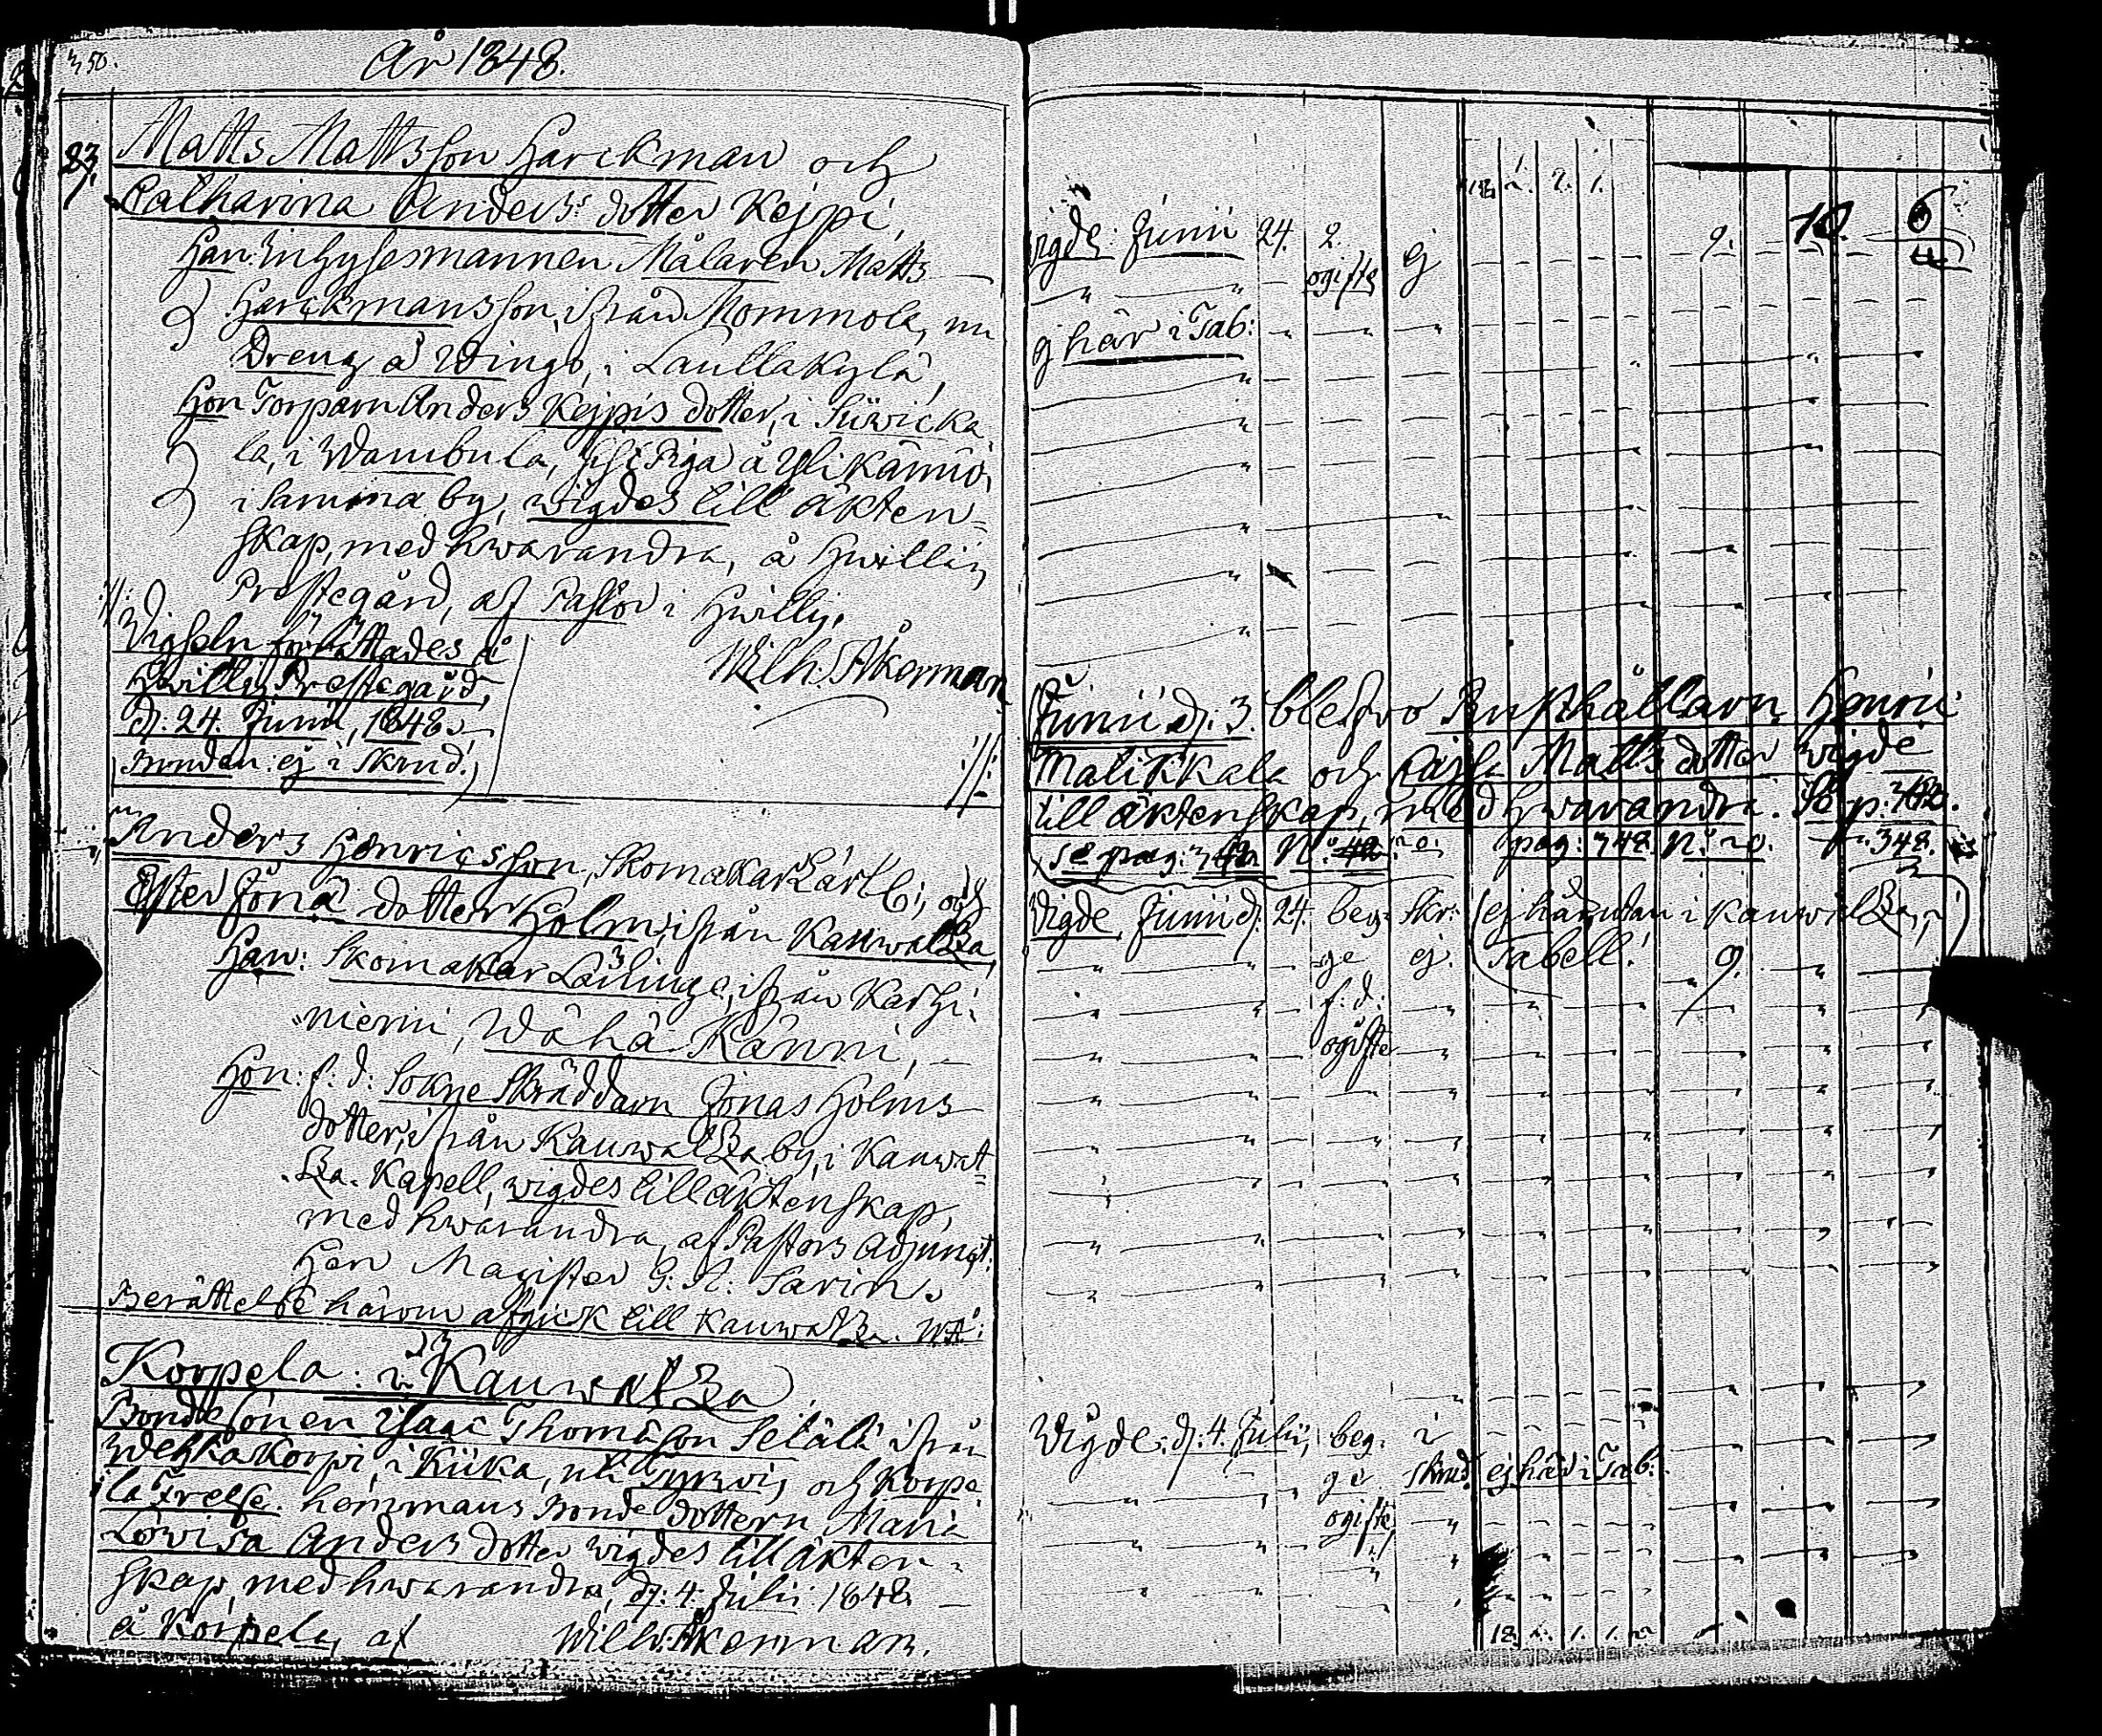 350.
År 1848.
23.
Matts Mattsson Harckman och
Catharina Anders dotter Kejpi,
Han: Inhysesmannen Målaren Matts
Harckmans son, ifrån Mommola, nu
Dreng å Wingo, i Lauttakylä,
Hon Torparn Anders Kejpis dotter, i Suwicka
la, i Wambula, Piga å Yli Kännö,
i samma by, wigdes till äkten-
skap, med hwarandra, å Hwittis
Prestegård, af Pastor i Hwittis.
Wilh. Åkerman
Vigseln förrättades å
Hwittis Prestegård,
d: 24. Junii, 1848.
Bruden ej i Skrud.
Anders Henricsson, Skomakar och
Ester Jona dotter Holm, ifrån Kauwatza,
Han: Skomakar ifrån Karhi-
niemi, Wähä-Känni,
Hon: f. d: Sokne Skräddarn Jonas Holms
dotter, ifrån Kauwatza by, i Kauwat-
za Kapell, wigdes till äktenskap,
med hwarandra, af Pastors Adjunct:
Herr Magister G: A: Sarin.
Berättelse härom afgick till Kauwatza. WÅ:
Korpela: i Kauwatza
Bondesonen Isaac Thomasson Setälä ifrån
Wehkakorpi, i Kiika, uti Tyrwis, och Korpe-
la Frelse hemmans Bonde dottern Maria
Lovisa Anders dotter wigdes till äkten-
skap, med hwarandra, d: 4. Julii 1848
å Korpela, af Wilh. Åkerman.
wigde: Junii 24. 2. ej 9. 10. 6
ogifte
ej här i Tab:
Junii d: 3. blefwo Rusthållarn Henric
Malikkala och Cajsa Matts dotter wigde
till äktenskap, med hwarandra. Se p.
se pag: N: pag: 348. N: 20. p. 348.
Vigde Junii d: 24. beg- Skr: (ej härutan i Kauwatza,
ge ej. Tabell. 9.
f. d:
ogifte
Vigde: d: 4. Julii, beg- i
ge skrud ej här i Tab:
ogifte